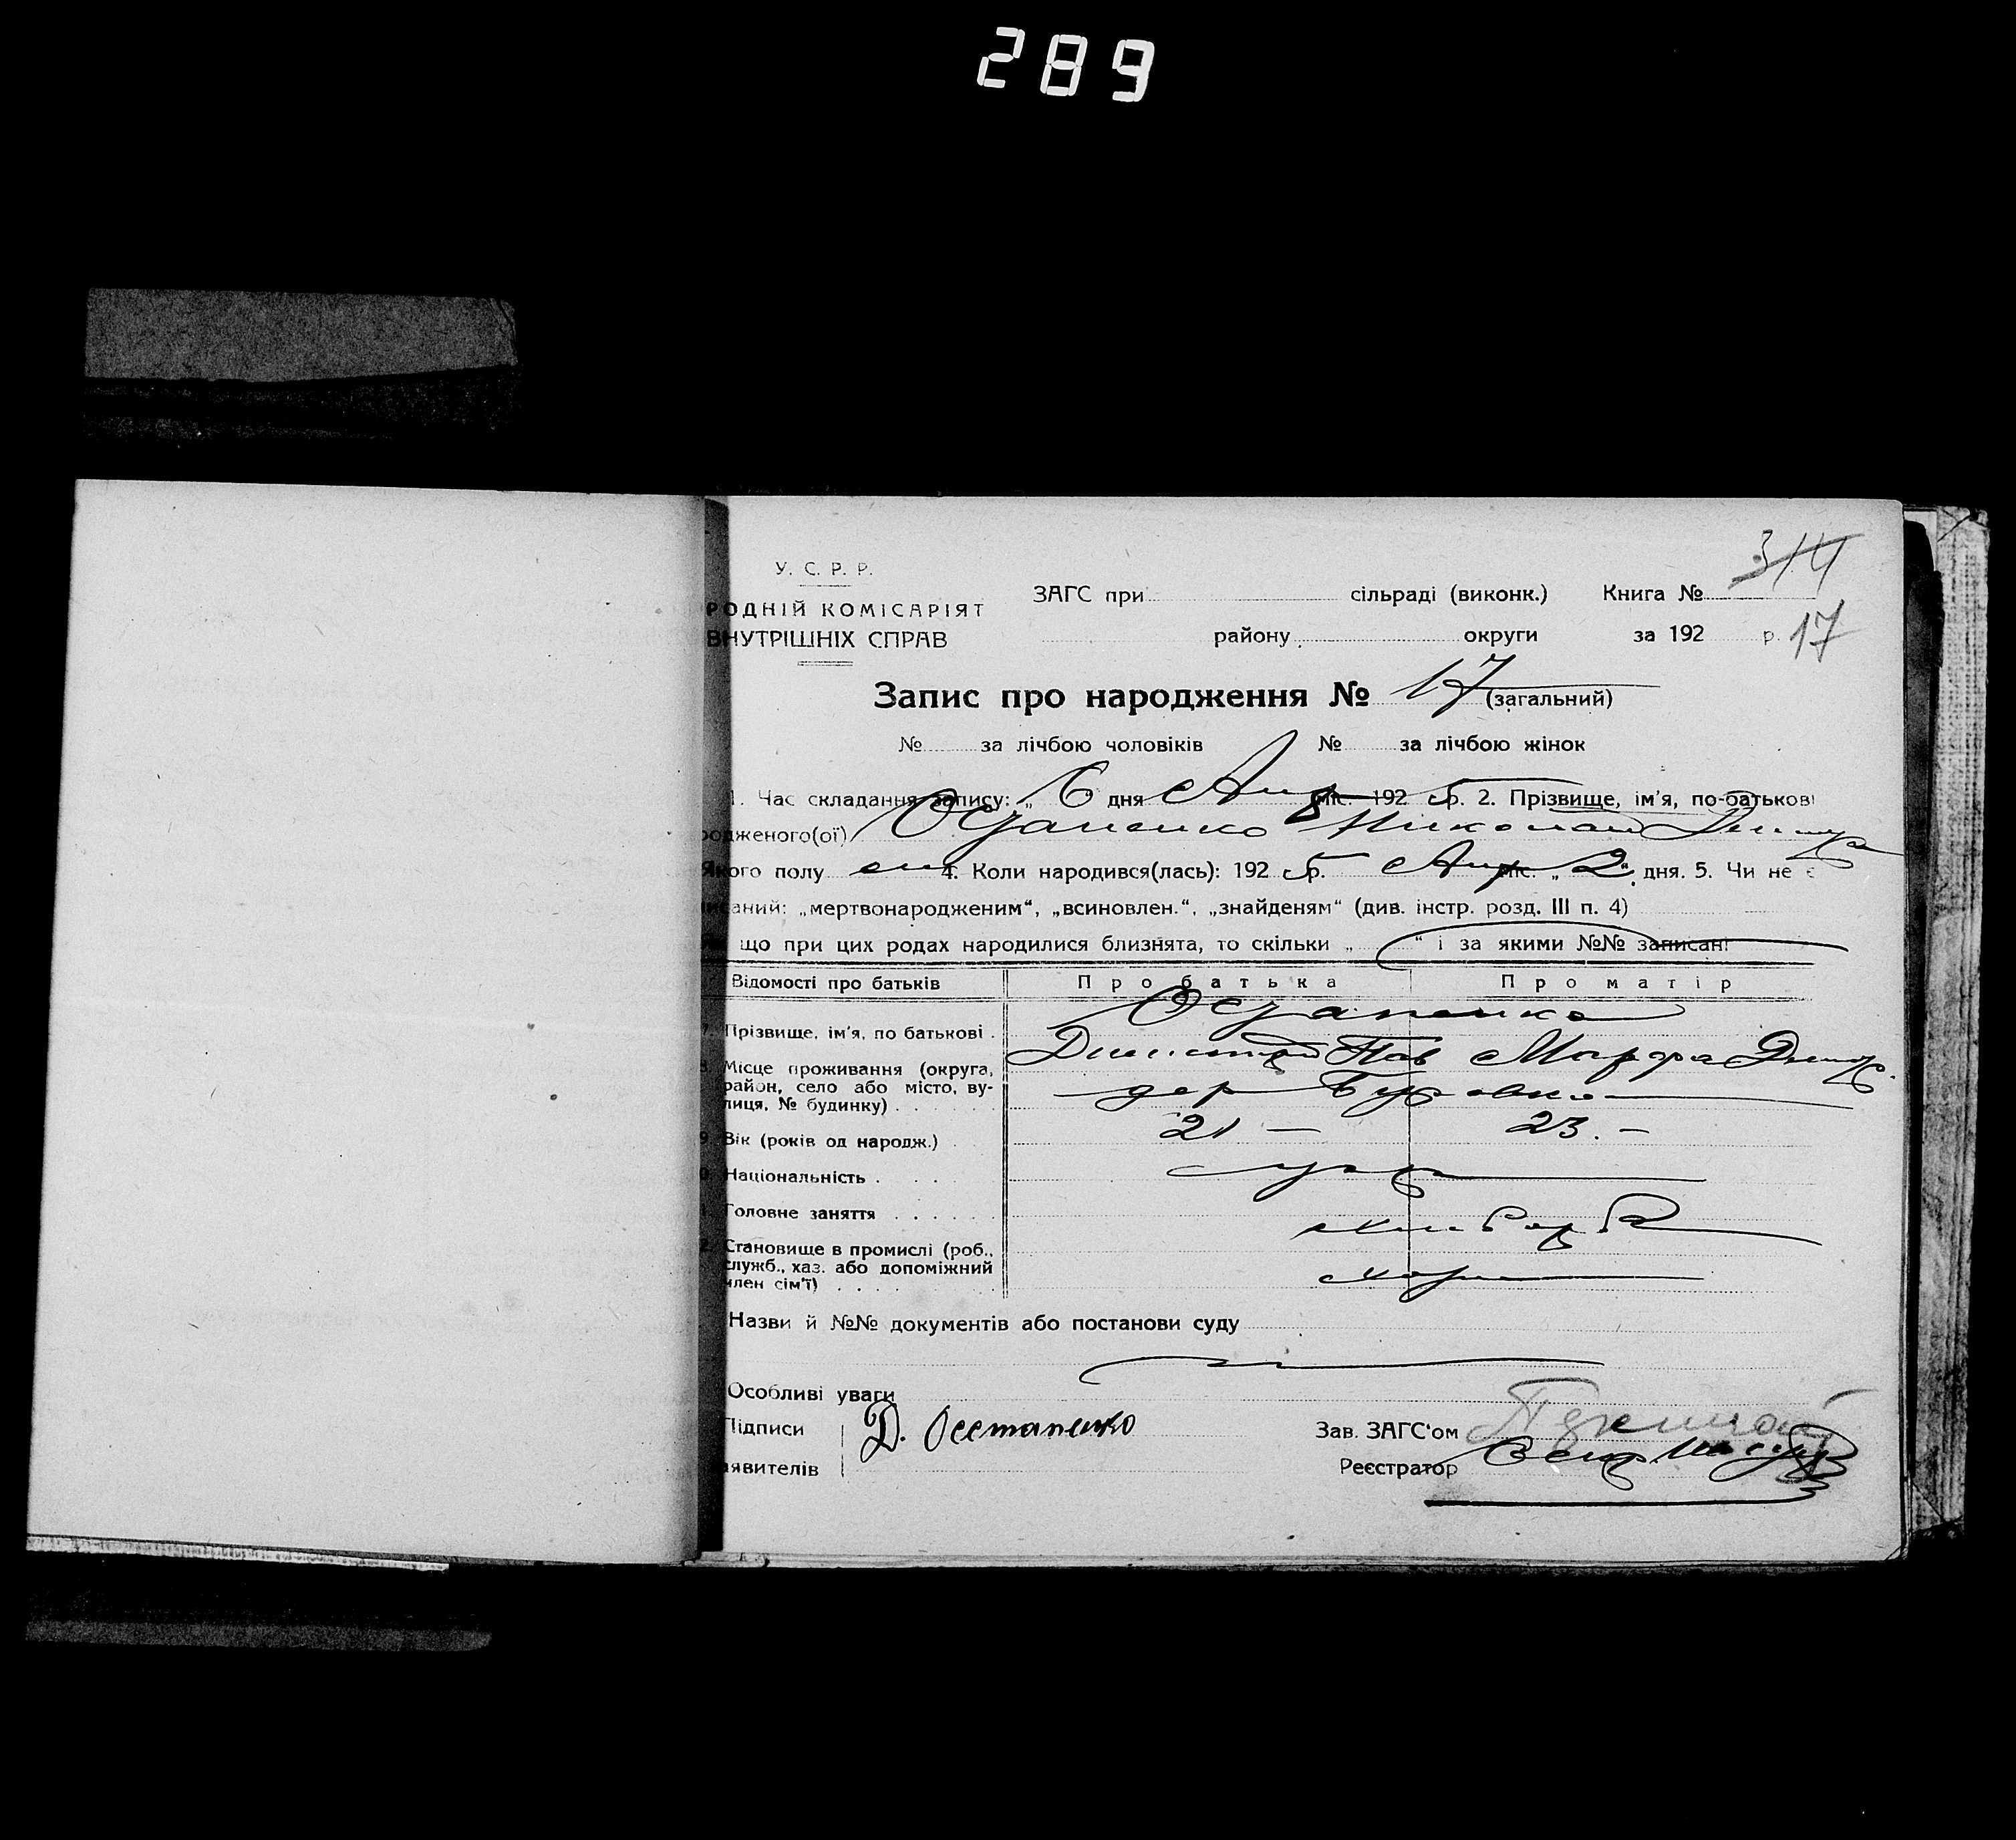 289
У. С. Р. Р.
РОДНІЙ КОМІСАРІЯТ
ВНУТРІШНІХ СПРАВ
ЗАГС при сільраді (виконк.) Книга № 314
району округи за 192 р. 17
Запис про народження № 17 (загальний)
№ за лічбою чоловіків № за лічбою жінок
1. Час складання запису: „ 6 " дня Апр міс. 192 5 р. 2. Прізвище, ім'я, по-батькові
родженого(ої) Николай Дмитр
Якого полу 4. Коли народився(лась): 192 5 р. Апр міс. „ 2 " дня. 5. Чи не є
писаний: „мертвонародженим", „всиновлен.", „знайденям" (див. інстр. розд. III п. 4)
що при цих родах народилися близнята, то скільки „ " і за якими №№ записані
Відомості про батьків Про батька Про матір
7. Прізвище, ім'я, по батькові .
Дмитрий Пав Марфа Дмитр.
8. Місце проживання (округа,
район, село або місто, ву-
лиця, № будинку) . . . . . . дер
9. Вік (років од народж.) . 21 — 23. —
0. Національність . . . . укр
1. Головне заняття . . . . . . хлебороб
2. Становище в промислі (роб.,
служб., хаз. або допоміжний
член сім'ї) . . . .
Назви й №№ документів або постанови суду
Особливі уваги
Підписи Д. Осстапенко Зав. ЗАГС'ом
аявителів Реєстратор